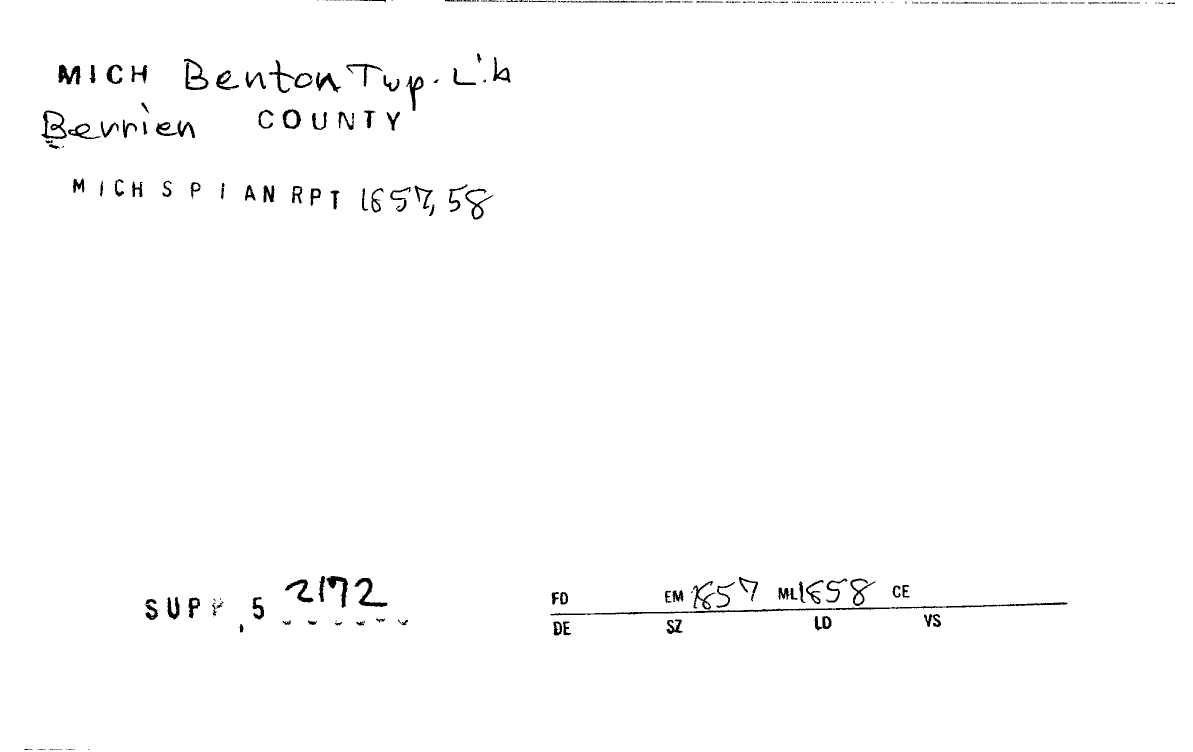 MICH Benton Twp. Lib
Berrien COUNTY
MICH S P I AN RPT 1857, 58
SUPP, 5 2172
FD EM 1857 ML 1858 CE
DE SZ LD VS